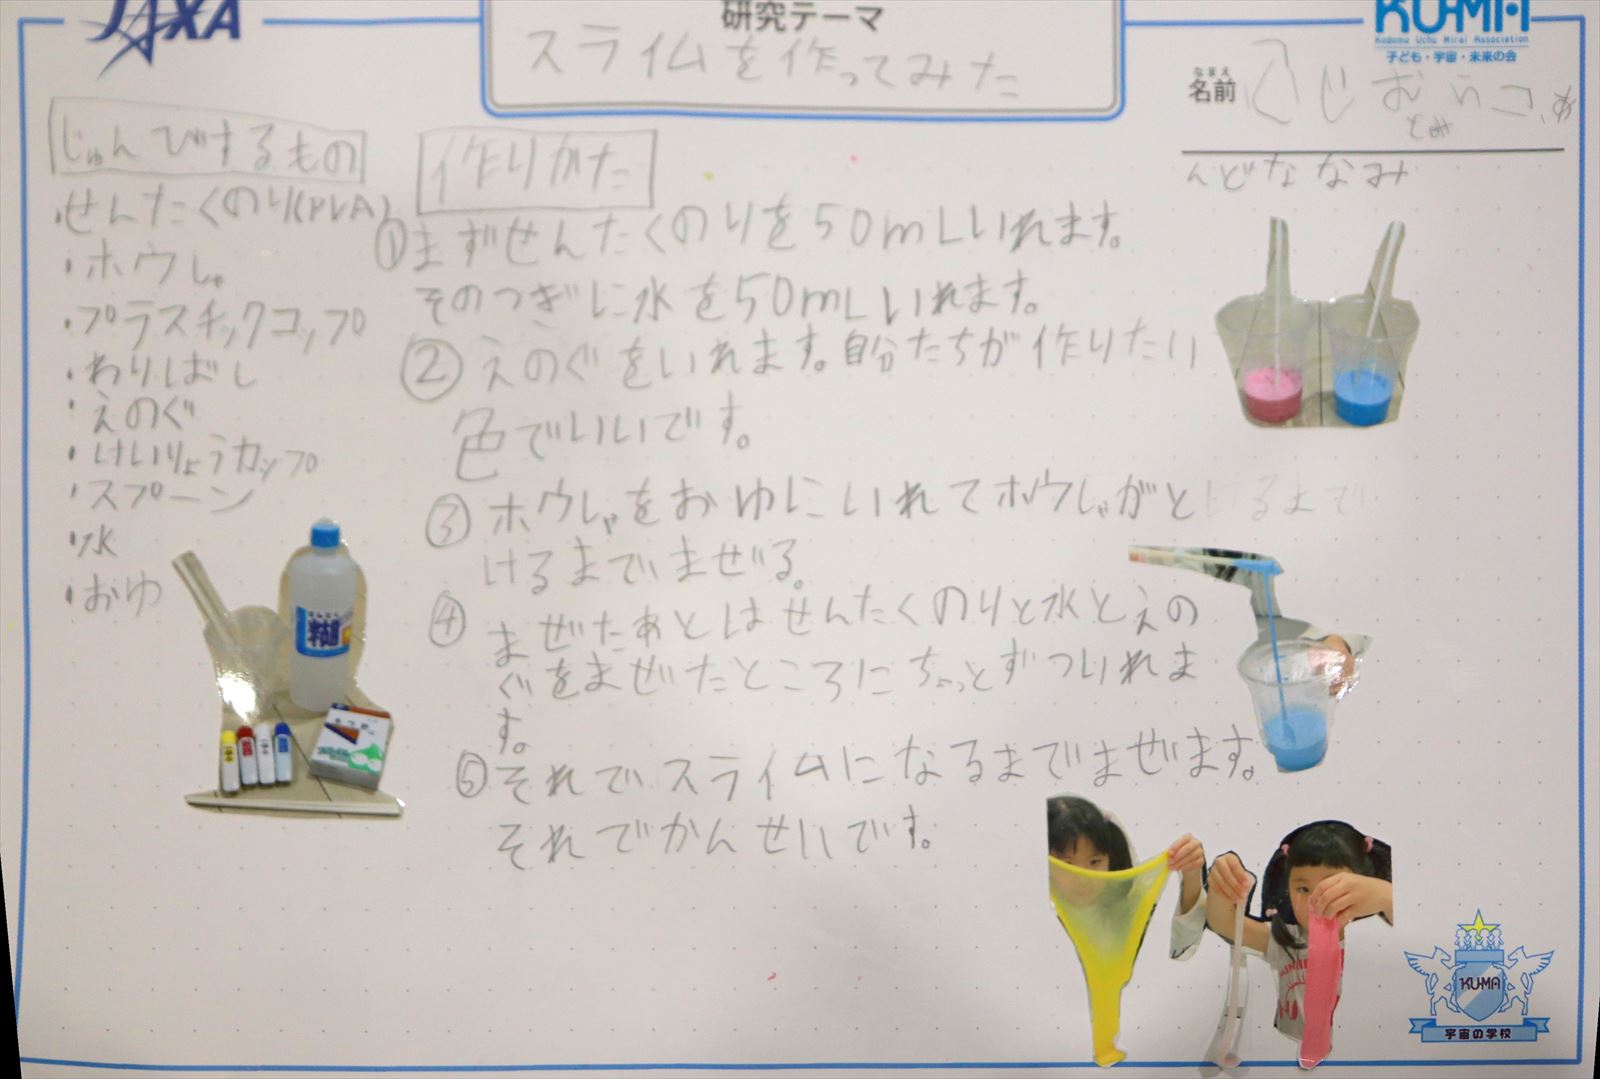 JAXA
研究テーマ
スライムを作ってみた
KU-MA
Kodomo Uchu Mirai Association
子ども・宇宙・未来の会
なまえ
名前
んどななみ
じゅんびするもの
・せんたくのり(PVA)
・ホウしゃ
・プラスチックコップ
・わりばし
・えのぐ
・けいりょうカップ
・スプーン
・水
・おゆ
作りかた
①まずせんたくのりを50mLいれます。
そのつぎに水を50mLいれます。
②えのぐをいれます。自分たちが作りたい
色でいいです。
③ホウしゃをおゆにいれてホウしゃがと
けるまでまぜる。
④まぜたあとはせんたくのりと水とえの
ぐをまぜたところにちょっとずついれま
す。
⑤それでスライムになるまでまぜます。
それでかんせいです。
せんたく
糊
KU-MA
宇宙の学校